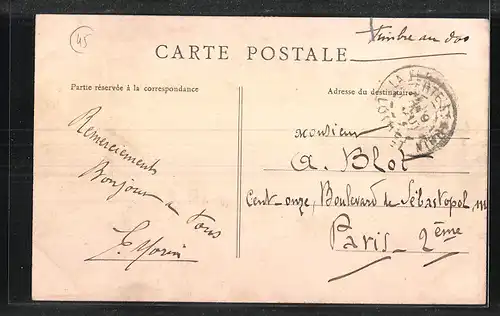 45
Timbre au dos
CARTE POSTALE
Partie réservée à la correspondance
Adresse du destinataire
Remerciements
Bonjour a Tous
Monsieur
A. Blot
Cent-onze, Boulevard de Sébastopol,
Paris - 2ème